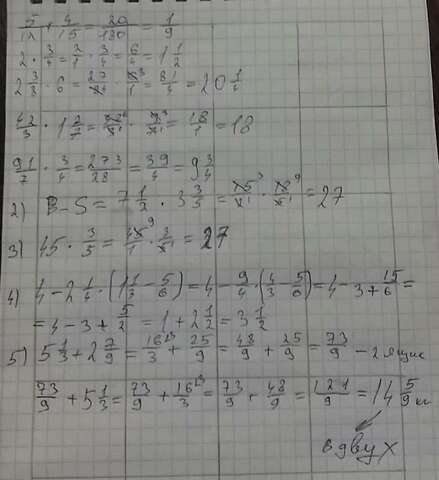 5/12 · 4/15 = 20/180 = 1/9
2 · 3/4 = 2/1 · 3/4 = 6/4 = 1 1/2
2 3/8 · 6 = 27/4 · 3/1 = 81/4 = 20 1/4
42/3 · 1 2/7 = 18/1 = 18
91/7 · 3/4 = 273/28 = 39/4 = 9 3/4
2) B-S = 7 1/2 · 3 3/5 = 15/1 · 18/1 = 27
3) 45 · 3/5 = 45/1 · 3/1 = 27
4) 4 - 2 1/4 · (1 1/3 - 5/6) = 4 - 9/4 · (4/3 - 5/6) = 4 - 3 + 15/6 =
= 4 - 3 + 5/2 = 1 + 2 1/2 = 3 1/2
5) 5 1/3 + 2 7/9 = 16/3 + 25/9 = 48/9 + 25/9 = 73/9 - 2 ящик
73/9 + 5 1/3 = 73/9 + 16/3 = 73/9 + 48/9 = 121/9 = 14 5/9 кг
в двух